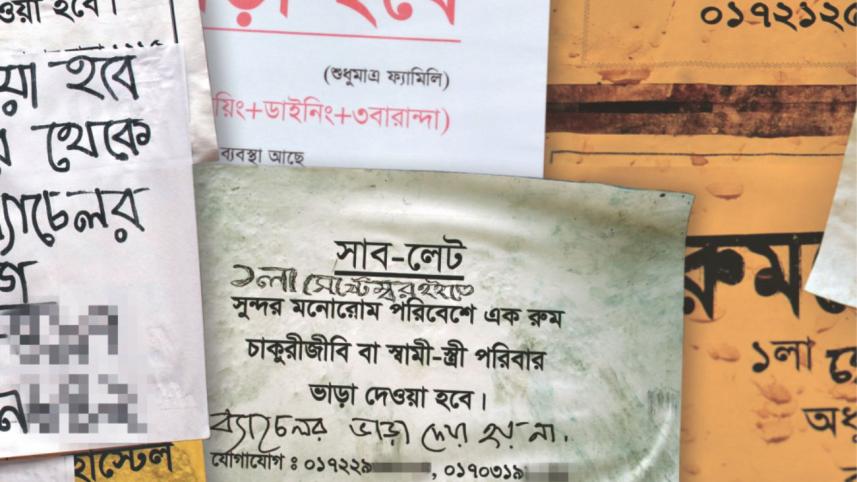 ওয়া হবে।
য়া হবে
থেকে
ব্যাচেলর
ড়া হবে
(শুধুমাত্র ফ্যামিলি)
য়িং+ডাইনিং+৩বারান্দা)
ব্যবস্থা আছে
০১৭২১২৫
সাব-লেট
১লা সেপ্টেম্বর হইতে
সুন্দর মনোরোম পরিবেশে এক রুম
চাকুরীজীবি বা স্বামী-স্ত্রী পরিবার
ভাড়া দেওয়া হবে।
ব্যাচেলর ভাড়া দেয়া হয় না।
যোগাযোগ : ০১৭২২৯, ০১৭০৩১৯
রুম
১লা
হাস্টেল